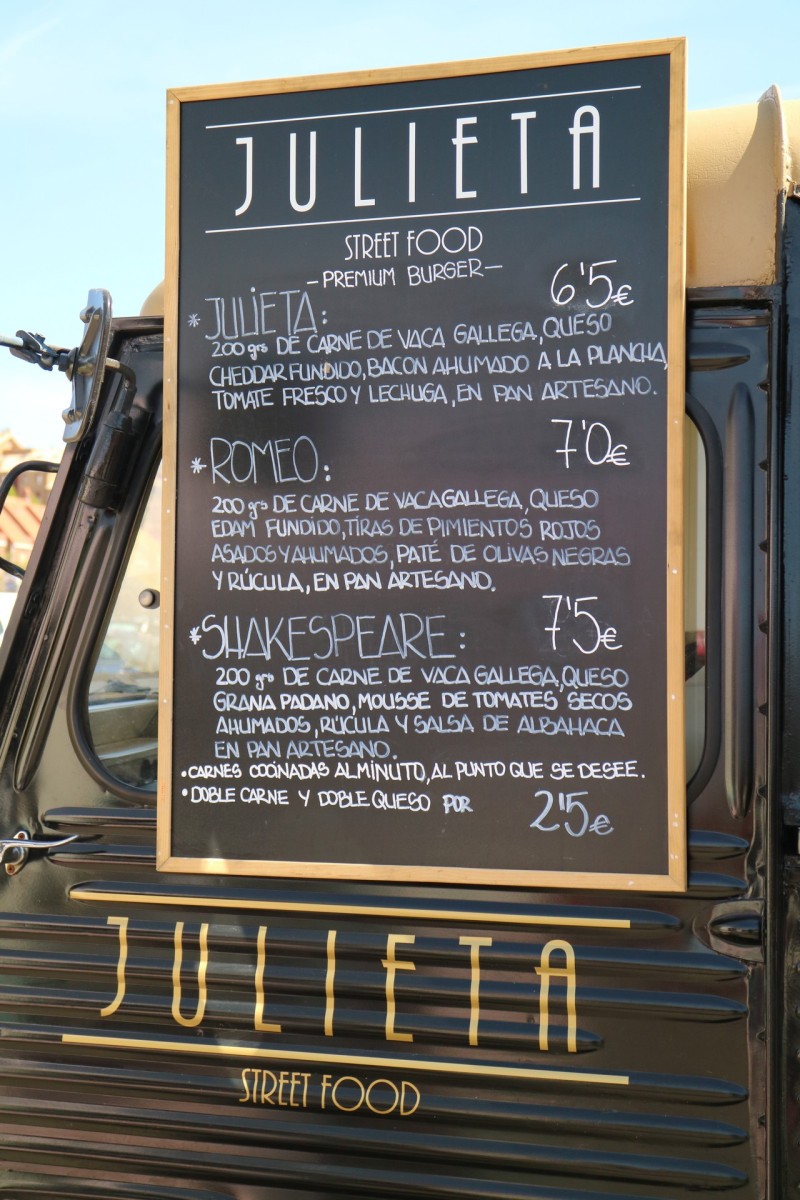 JULIETA
STREET FOOD
-PREMIUM BURGER-
6'5€
*JULIETA:
200 grs DE CARNE DE VACA GALLEGA, QUESO
CHEDDAR FUNDIDO, BACON AHUMADO A LA PLANCHA,
TOMATE FRESCO Y LECHUGA, EN PAN ARTESANO.
7'0€
*ROMEO:
200 grs DE CARNE DE VACA GALLEGA, QUESO
EDAM FUNDIDO, TIRAS DE PIMIENTOS ROJOS
ASADOS Y AHUMADOS, PATÉ DE OLIVAS NEGRAS
Y RÚCULA, EN PAN ARTESANO.
7'5€
*SHAKESPEARE:
200 grs DE CARNE DE VACA GALLEGA, QUESO
GRANA PADANO, MOUSSE DE TOMATES SECOS
AHUMADOS, RÚCULA Y SALSA DE ALBAHACA
EN PAN ARTESANO.
•CARNES COCINADAS AL MINUTO, AL PUNTO QUE SE DESEE.
•DOBLE CARNE Y DOBLE QUESO POR 2'5€
JULIETA
STREET FOOD